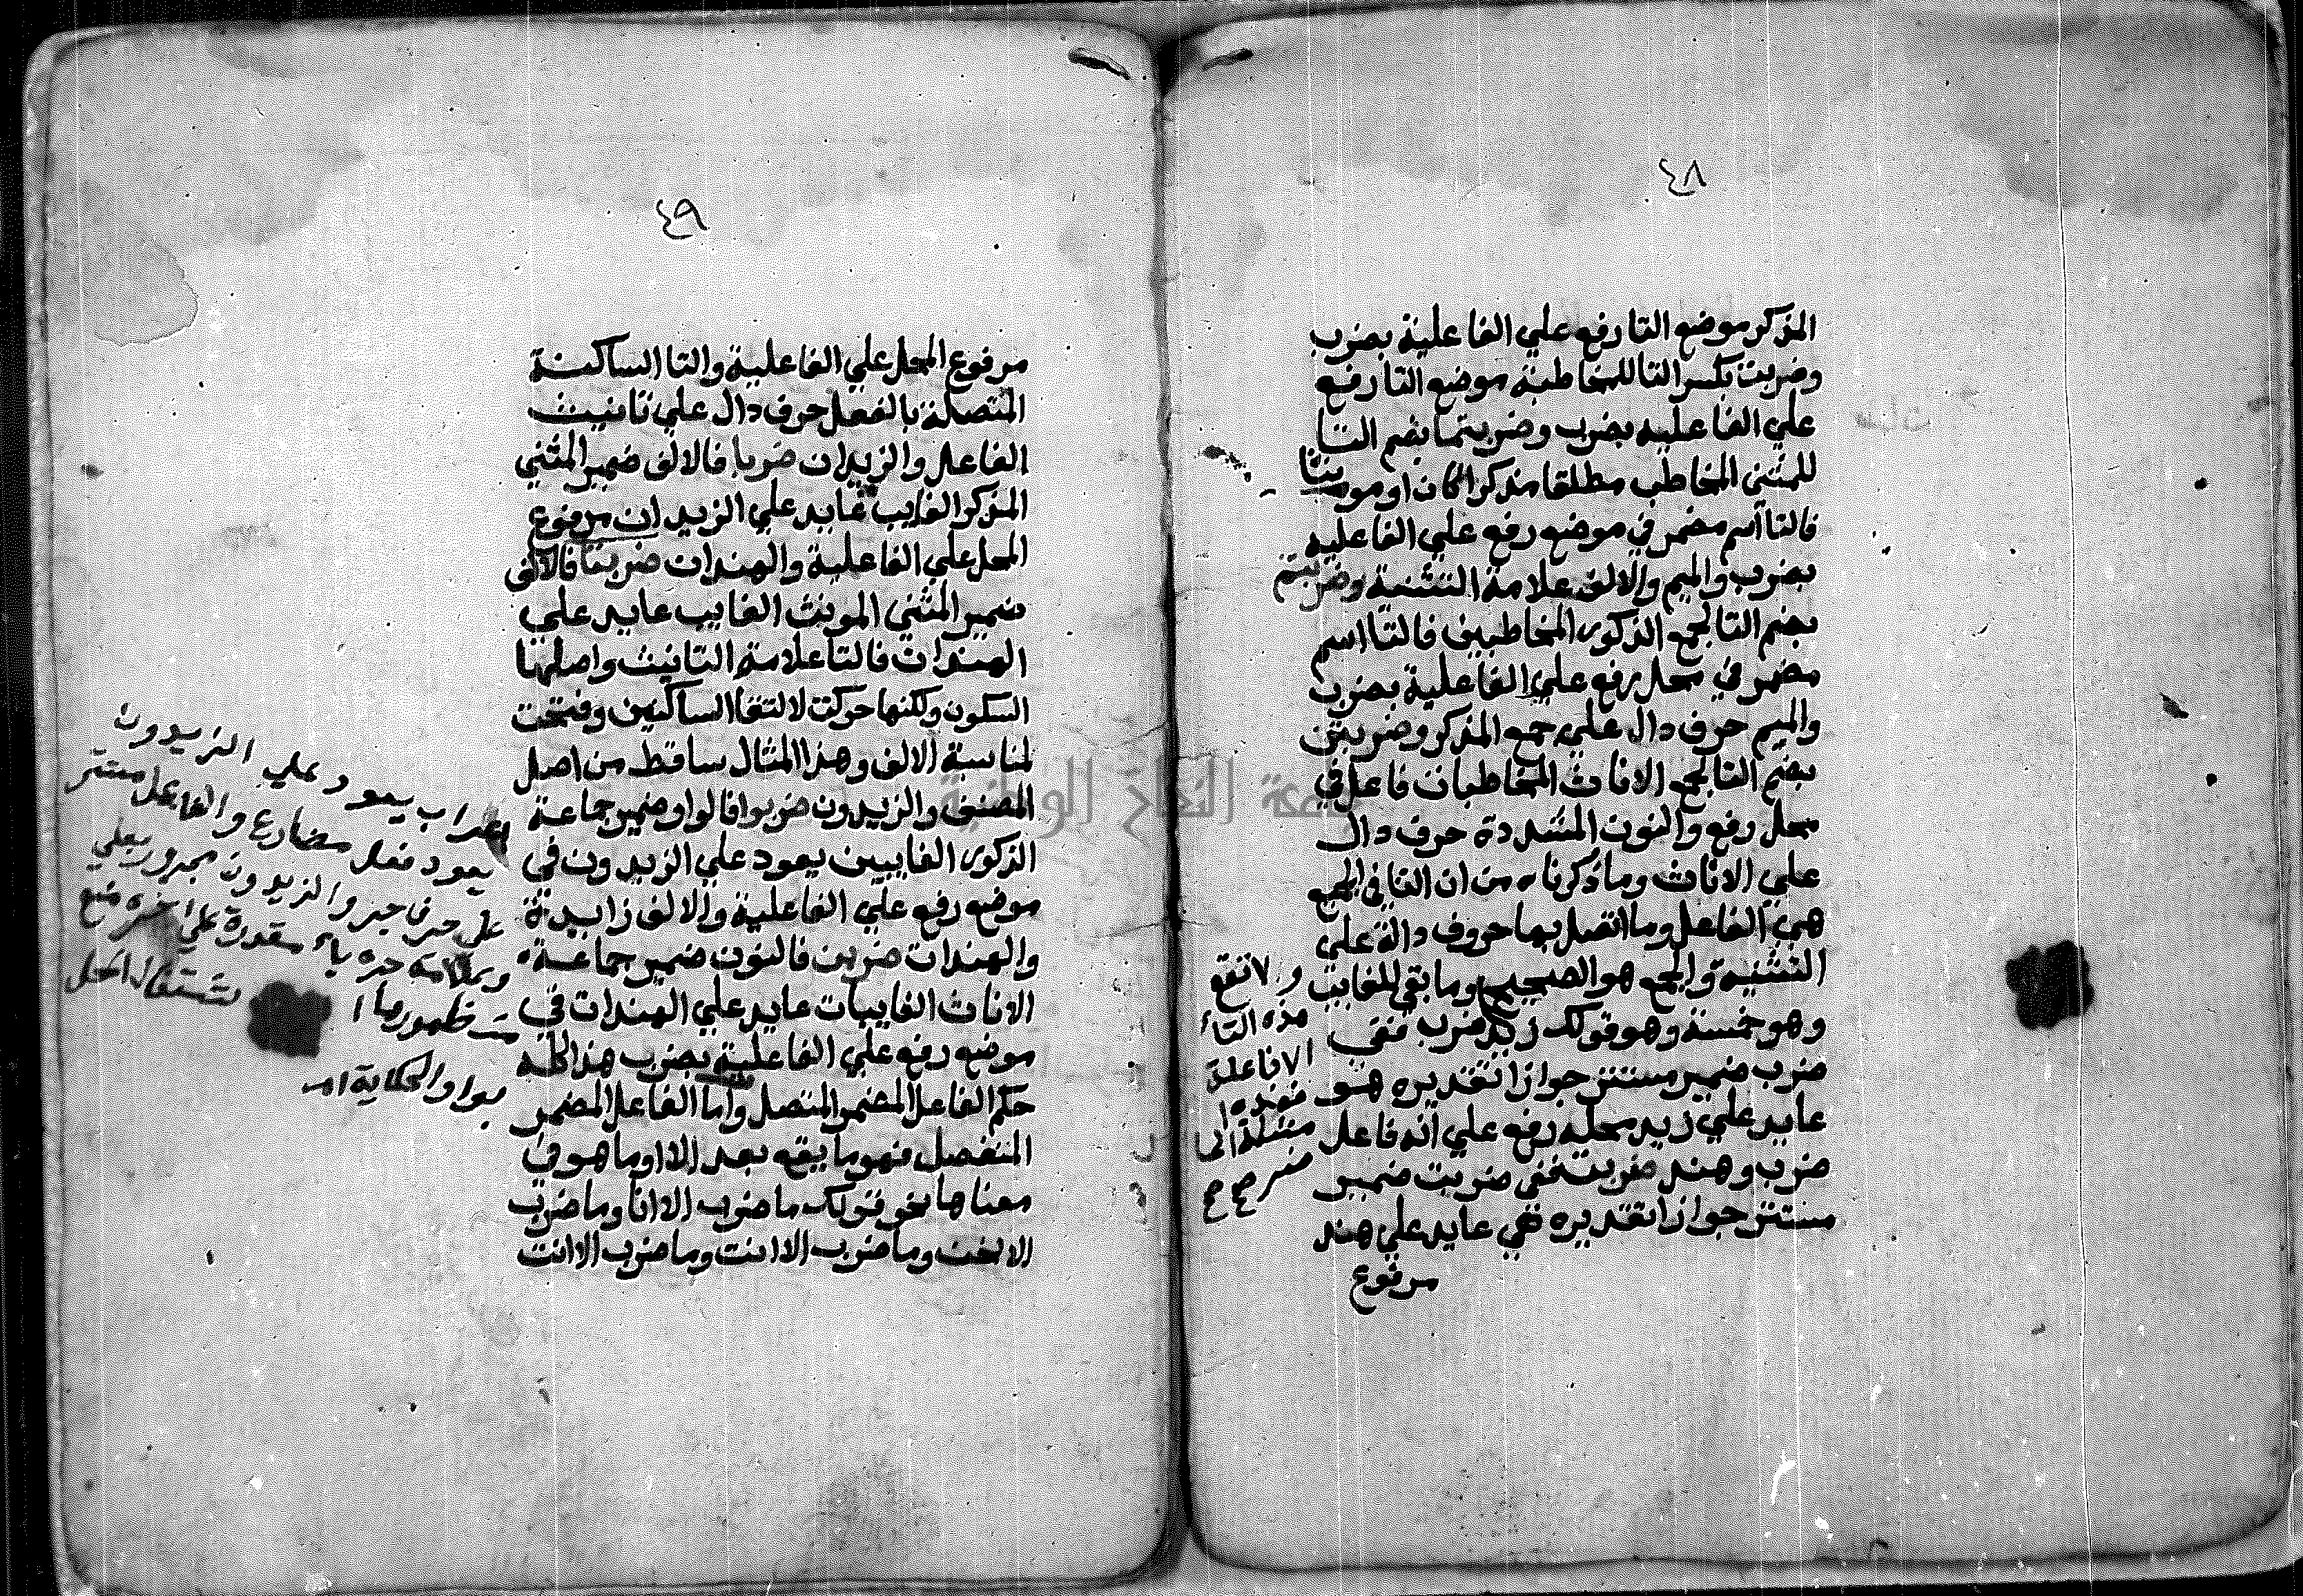 ٤٨
المذكر موضع التا رفع علي الفاعلية بضرب
وضربت بكسر التا للمخاطبة موضع التا رفع
علي الفاعليه بضرب وضربتما بضم التا
للمثني المخاطب مطلقا مذكرا كان او مونثا
فالتا اسم مضمر في موضع رفع علي الفاعليه
بضرب والميم والالف علامة التثنية وضربتم
بضم التا لجمع الذكور المخاطبين فالتا اسم
مضمر في محل رفع علي الفاعلية بضرب
والميم حرف دال علي جمع المذكر وضربتن
بضم التا لجمع الاناث المخاطبات فاعل في
محل رفع والنون المشددة حرف دال
علي الاناث وما ذكرناه من ان التا في الجمع
هي الفاعل وما اتصل بها حروف دالة علي
التثنيه والجمع هو الصحيح وما بقي للغايب
وهو خمسة وهو قولك زيد ضرب ففي
ضرب ضمير مستتر جوازا تقديره هو
عايد علي زيد محله رفع علي انه فاعل
ضرب وهند ضربت ففي ضربت ضمير
مستتر جوازا تقديره هي عايد علي هند
مرفوع
ولا تقع
هذه التاء
الا فاعلة
جامعة النجاح الوطنية
٤٩
مرفوع المحل علي الفاعلية والتا الساكنة
المتصلة بالفعل حرف دال علي تانيث
الفاعل والزيدان ضربا فالالف ضمير المثني
المذكر الغايب عايد علي الزيدان مرفوع
المحل علي الفاعلية والهندات ضربتا فالالف
ضمير المثني المونث الغايب عايد علي
الهندات فالتا علامة التانيث واصلها
السكون ولكنها حركت لالتقا الساكنين وفتحت
لمناسبة الالف وهذا المثال ساقط من اصل
المصنف والزيدون ضربوا فالواو ضمير جماعة
الذكور الغايبين يعود علي الزيدون في
موضع رفع علي الفاعلية والالف زايدة
والهندات ضربن فالنون ضمير جماعة
الاناث الغايبات عايد علي الهندات في
موضع رفع علي الفاعلية بضرب هذا كله
حكم الفاعل المضمر المتصل واما الفاعل المضمر
المنفصل فهو ما يقع بعد الا او ما هو في
معناها نحو قولك ما ضرب الا انا وما ضرب
الا نحن وما ضرب الا انت وما ضرب الا انت
اعراب يعود علي الزيدون
يعود فعل مضارع والفاعل مستتر
علي حرف جر والزيدون مجرور بعلي
وعلامة جره ياء مقدرة علي اخره منع
من ظهورها اشتغال المحل
بواو الحكاية اه